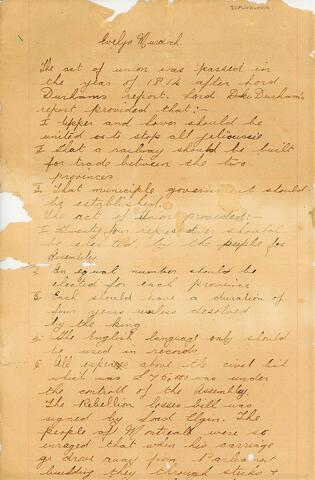 Evelyn Murdoch.
The act of union was passed in
the year of 1814 after lord
Durham's report. lord Durham's
report provided that:-
I Upper and lower should be
united so to stop all jelicusies
II that a railway should be built
for trade between the two
provinces
III That municiple government should
be established.
The act of Union provided:-
I twenty four should
be elected, by the people for
Assembley
2 An equal number should be
elected for each province
3 Each should have a duration of
four years unless desolved
by the king.
4 The English language only should
be used in records.
5 All above the civil list
which was £75,000 was under
the controll of the assembley.
The Rebellion losses bill was
signed by Lord Elgin. The
people of Montreal were so
enraged that when his carriage
go drove away from Parliament
building they through sticks +